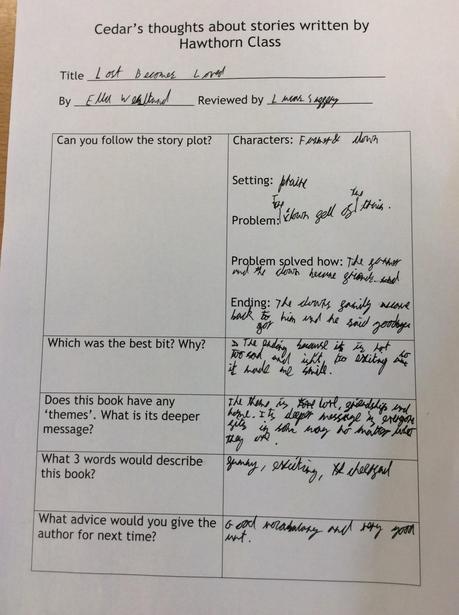 Cedar's thoughts about stories written by
Hawthorn Class
Title Lost Becomes Loved
By Ella Reviewed by
Can you follow the story plot?
Characters: clown
Setting:
Problem: The clown fell of the train.
Problem solved how: The
and the clown became friends
Ending: The clowns family
back to him and he said goodbye
got
Which was the best bit? Why?
The ending because it is not
too sad and isht too exiting so
it made me smile.
Does this book have any
'themes'. What is its deeper
message?
The theme is lost, friendship and
home. Its deeper message is everyone
fits in some way no matter who
they are.
What 3 words would describe
this book?
funny, exciting, cheerful
What advice would you give the
author for next time?
Good vocabulary and very good